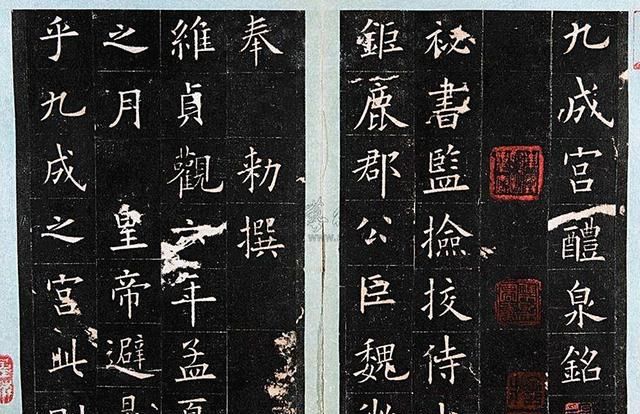 九成宮醴泉銘
秘書監撿挍侍
鉅鹿郡公臣魏
奉 勅撰
維貞觀六年孟夏
之月 皇帝避暑
乎九成之宮此則